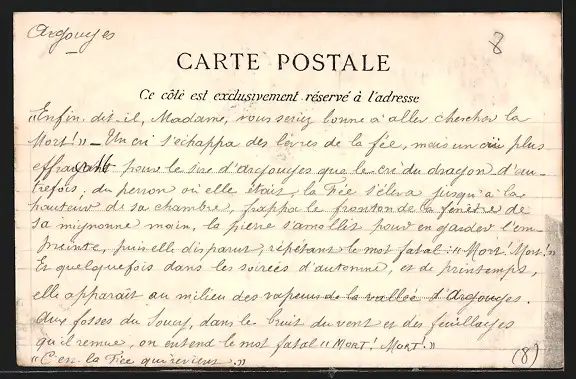 Argouges
8
CARTE POSTALE
Ce côté est exclusivement réservé à l'adresse
"Enfin dit-il, Madame, vous seriez bonne à aller chercher la
Mort!" — Un cri s'échappa des lèvres de la fée, mais un cri plus
effrayant pour le sire d'Argouges que le cri du dragon d'au-
trefois, du perron où elle était, la Fée s'éleva jusqu'à la
hauteur de sa chambre, frappa le fronton de la fenêtre de
sa mignonne main, la pierre s'amollit pour en garder l'em-
preinte, puis elle disparut, répétant le mot fatal: "Mort! Mort!"
Et quelquefois dans les soirées d'automne, et de printemps,
elle apparaît au milieu des vapeurs de la vallée d'Argouges.
Aux fosses du Soucy, dans le bruit du vent et des feuillages
qu'il remue, on entend le mot fatal "MORT! MORT!"
"C'est la Fée qui revient."
(8)